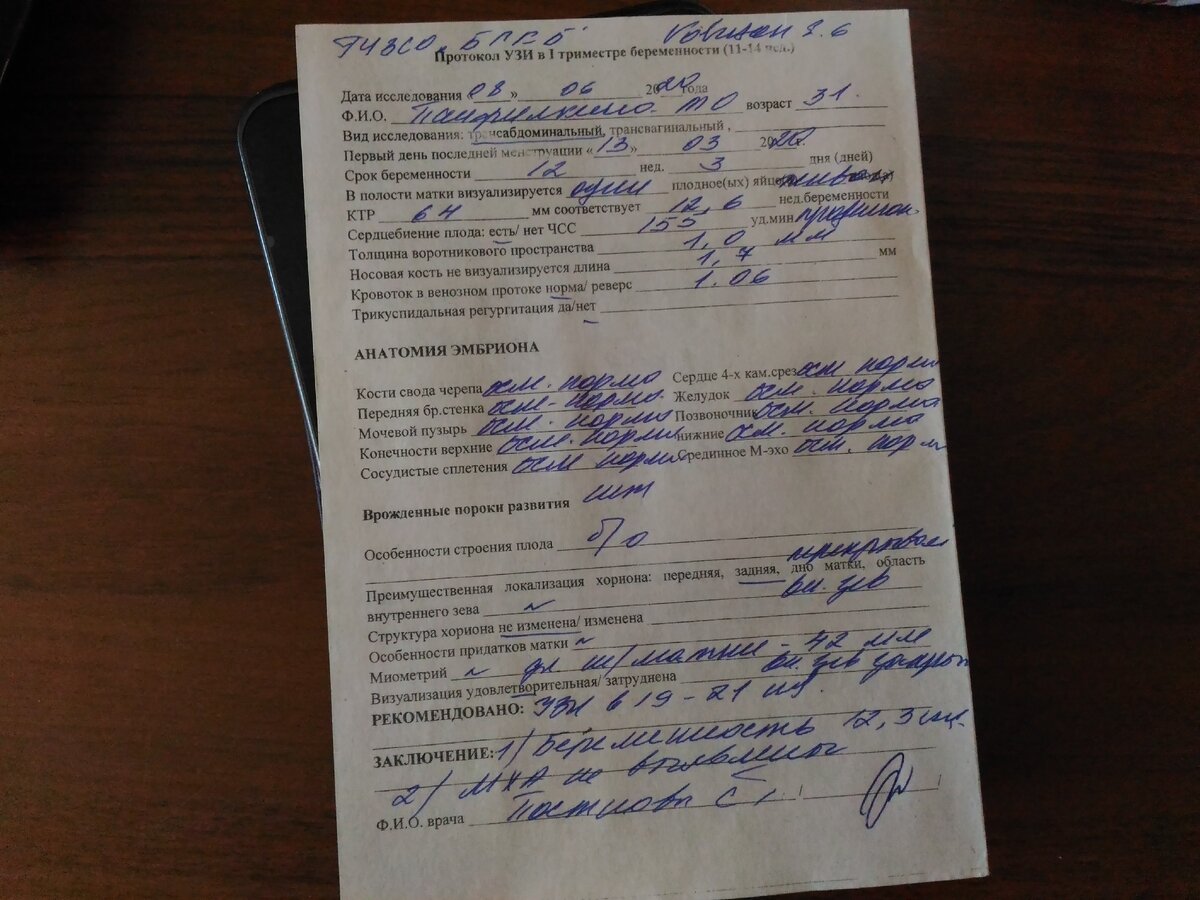 ГУЗСО БГКБ Voluson S.6
Протокол УЗИ в I триместре беременности (11-14 нед.)
Дата исследования « 08 » 06 20 20 года
Ф.И.О. ТО возраст 31.
Вид исследования: трансабдоминальный, трансвагинальный ,
Первый день последней менструации « 13 » 03 20 20 г.
Срок беременности 12 нед. 3 дня (дней)
В полости матки визуализируется один плодное(ых) яйцо
КТР 64 мм соответствует 12,6 нед.беременности
Сердцебиение плода: есть/ нет ЧСС 155 уд.мин
Толщина воротникового пространства 1,0 мм
Носовая кость не визуализируется длина 1,7 мм
Кровоток в венозном протоке норма/ реверс 1.06
Трикуспидальная регургитация да/нет
АНАТОМИЯ ЭМБРИОНА
Кости свода черепа осм. норма Сердце 4-х кам.срез осм норм
Передняя бр.стенка осм. норма Желудок осм. норма
Мочевой пузырь осм. норма Позвоночник осм. норма
Конечности верхние осм. норма нижние осм. норма
Сосудистые сплетения осм норм Срединное М-эхо осм. норм
Врожденные пороки развития нет
Особенности строения плода б/о
Преимущественная локализация хориона: передняя, задняя, дно матки, область перекрывает
внутреннего зева ~ вн. зев
Структура хориона не изменена/ изменена
Особенности придатков матки ~
Миометрий ~ дл ш/матки - 42 мм
Визуализация удовлетворительная/ затруднена вн. зев закрыт
РЕКОМЕНДОВАНО: УЗИ в 19-21 нд.
ЗАКЛЮЧЕНИЕ: 1/ Беременность 12,3 нед.
2/ МХА не выявлены
Ф.И.О. врача